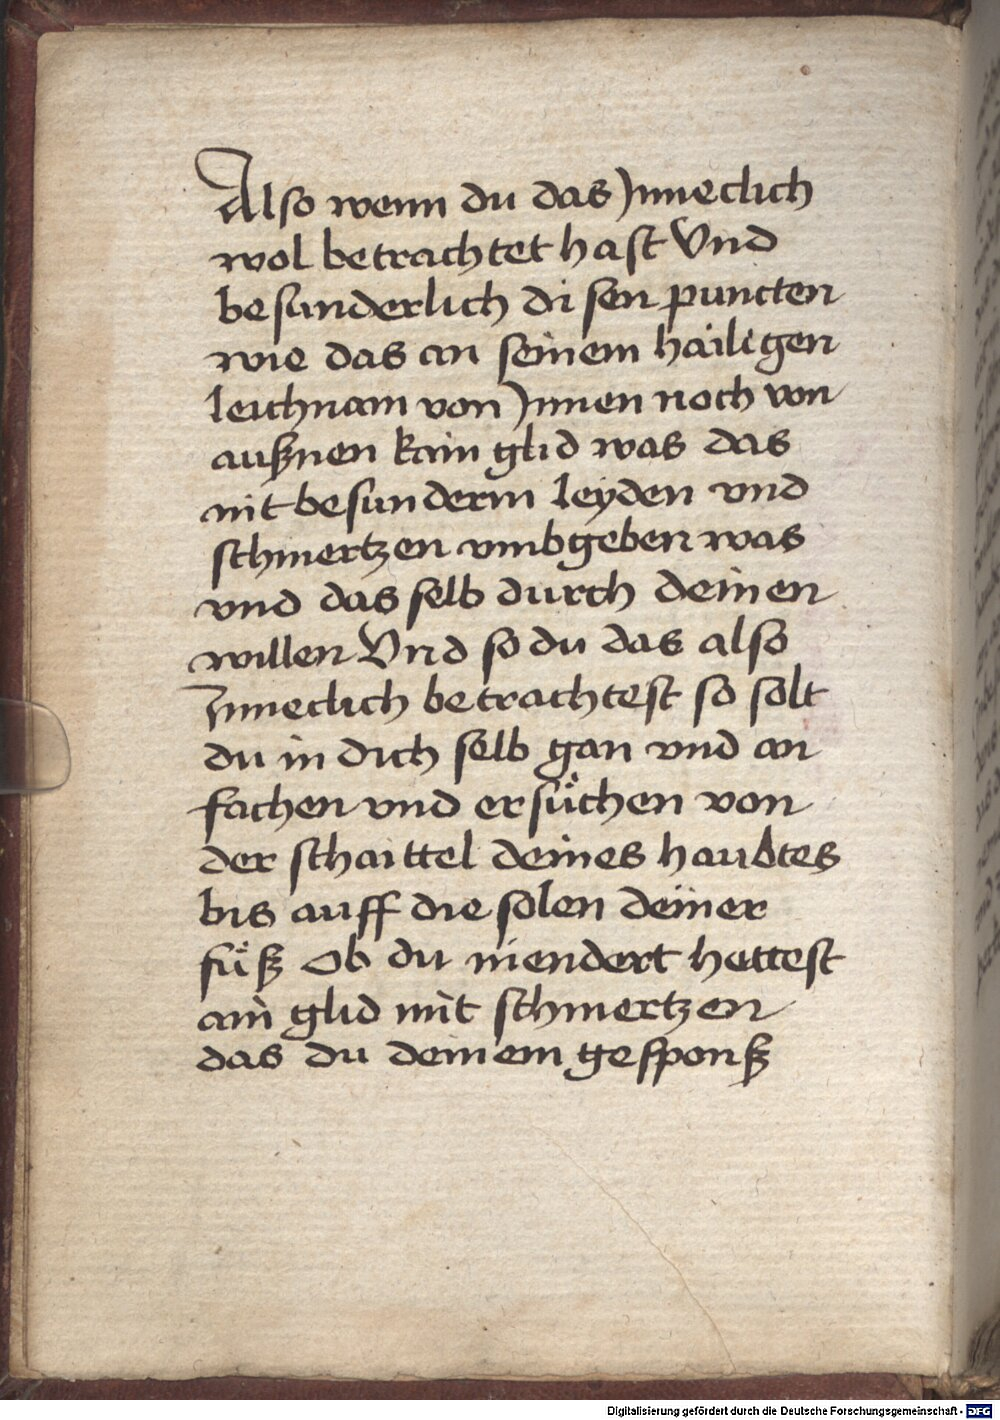 Also wenn du das Jnneclich
wol betrachtet hast Vnd
besunderlich disen puncten
wie das an seinem hailigen
leichnam von Jnnen noch von
außnen kain glid was das
nit besunderm leyden vnd
schmertzen vmbgeben was
vnd das selb durch deinen
willen Vnd so du das also
Jnneclich betrachtest so solt
du in dich selb gan vnd an
fachen vnd ersůchen von
der schaittel deines haubtes
bis auff die solen deiner
fůß Ob du niendert hettest
ain glid mit schmertzen
das du deinem gesponß
Digitalisierung gefördert durch die Deutsche Forschungsgemeinschaft - DFG